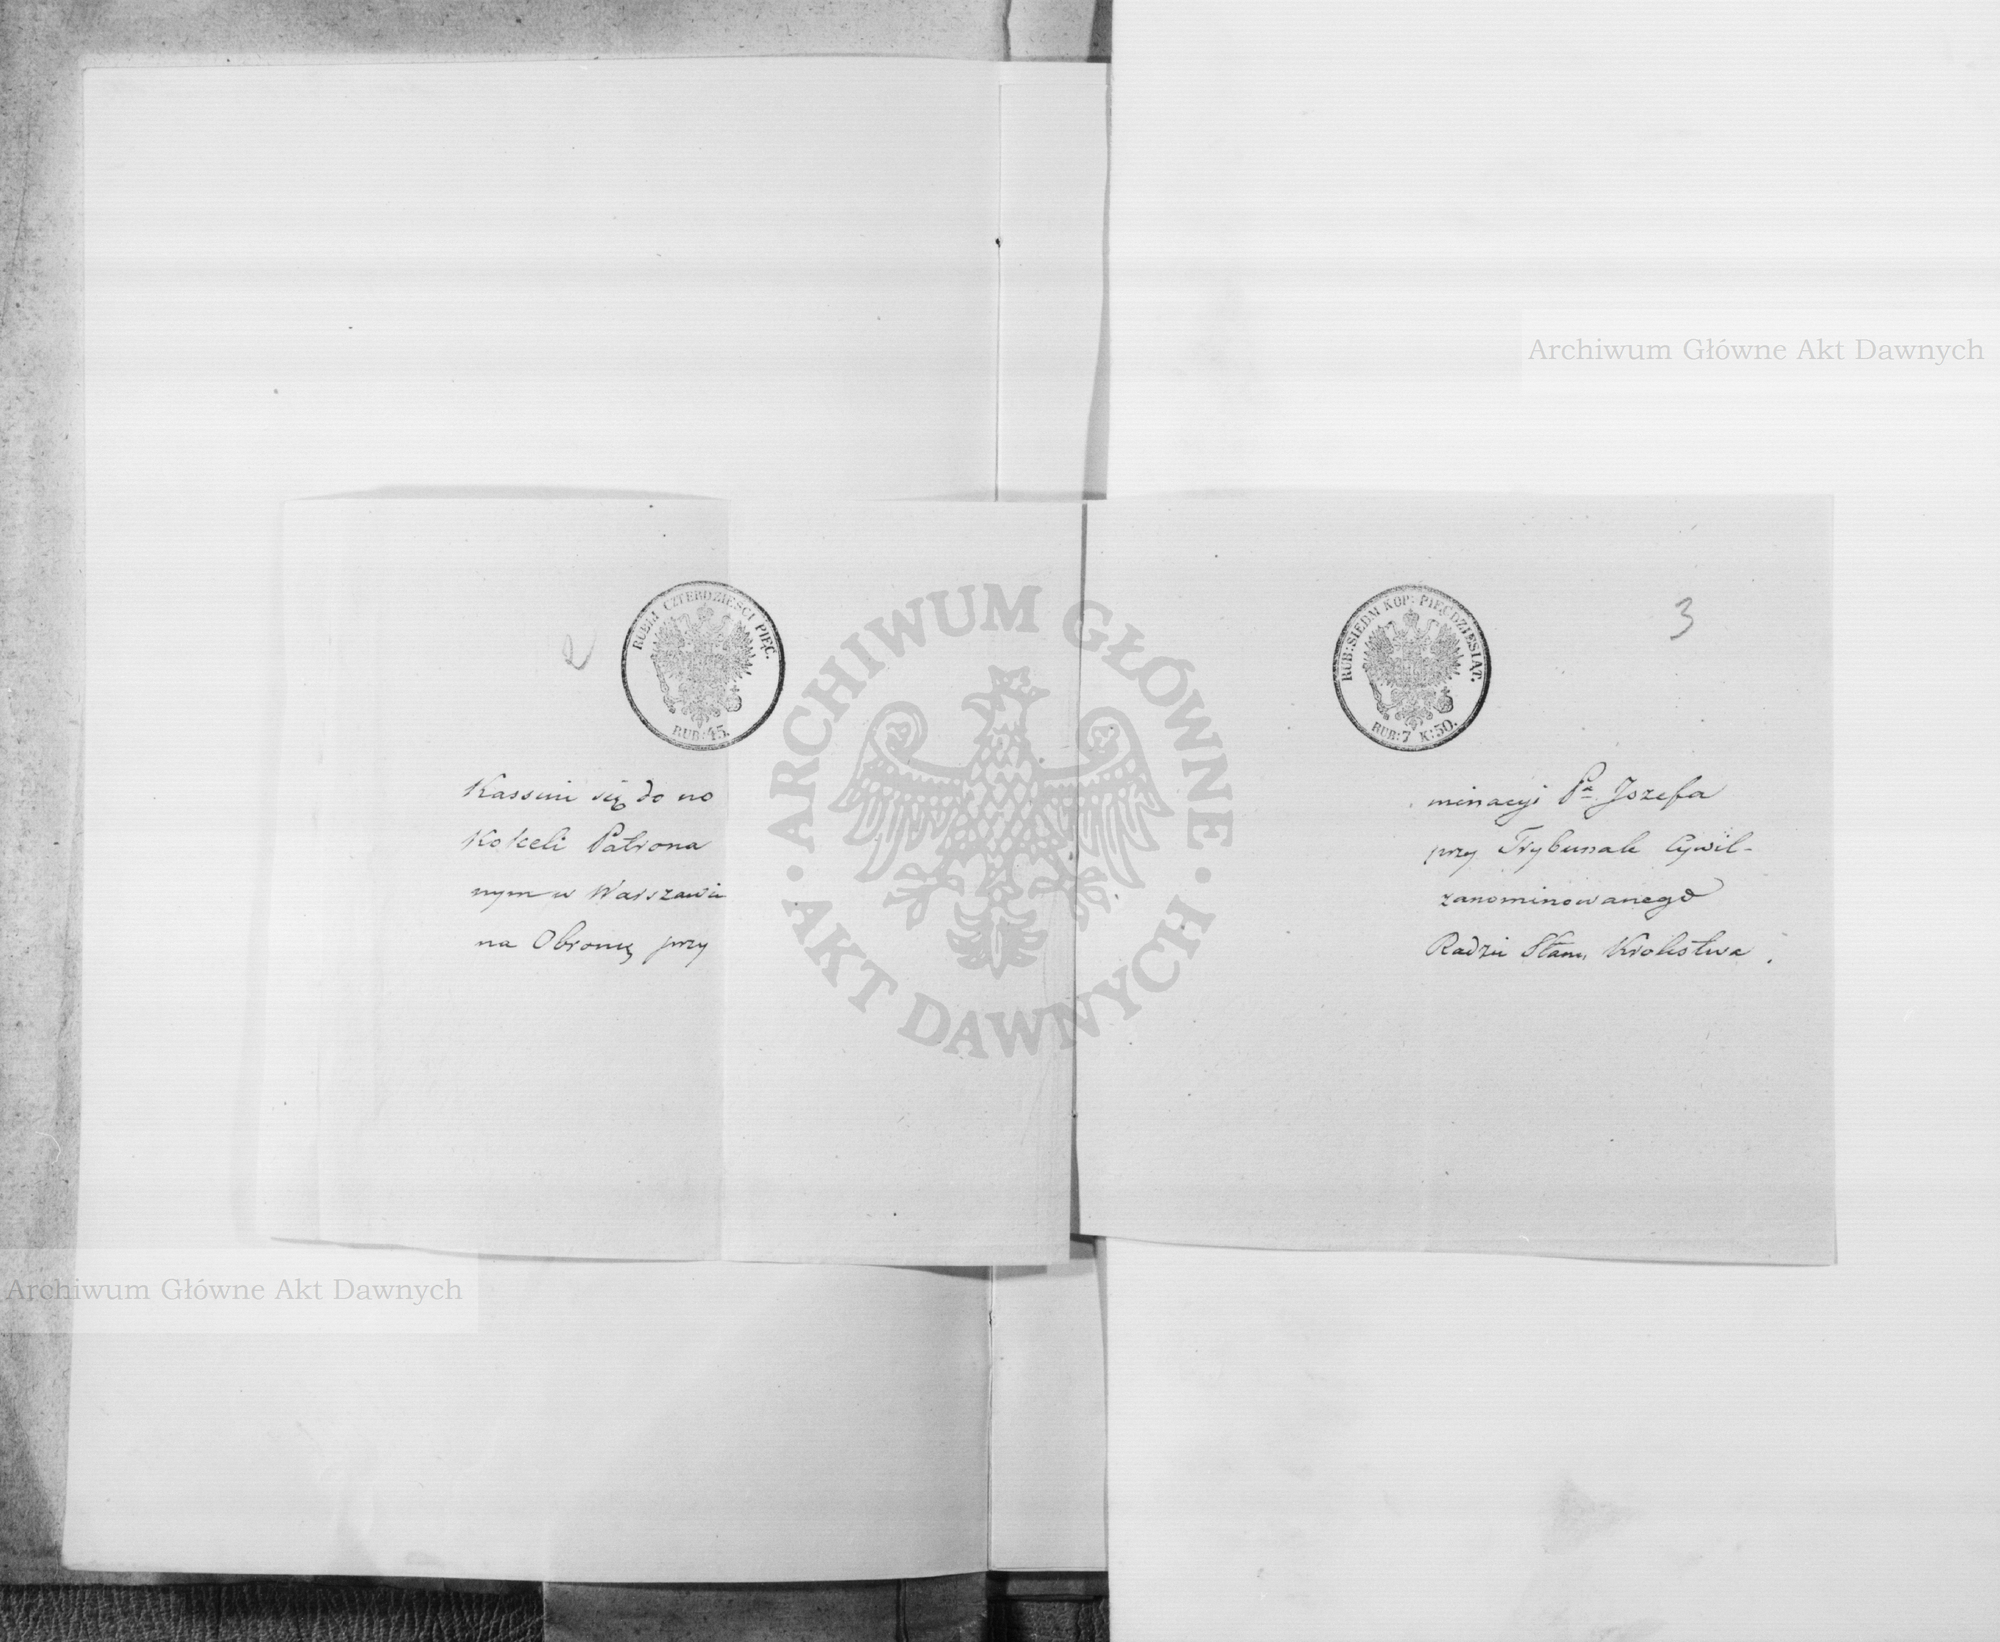 2
RUBLI CZTERDZIEŚCI PIĘĆ.
RUB: 45.
Kassuie się do no
Kokeli Patrona
nym w Warszawie
na Obrońcę przy
3
RUB: SIEDM KOP: PIĘĆDZIESIĄT.
RUB: 7 K: 50.
minacyi Pa Jozefa
przy Trybunale Cywil-
zanominowanego
Radzie Stanu Krolestwa.
ARCHIWUM GŁÓWNE
AKT DAWNYCH
Archiwum Główne Akt Dawnych
Archiwum Główne Akt Dawnych